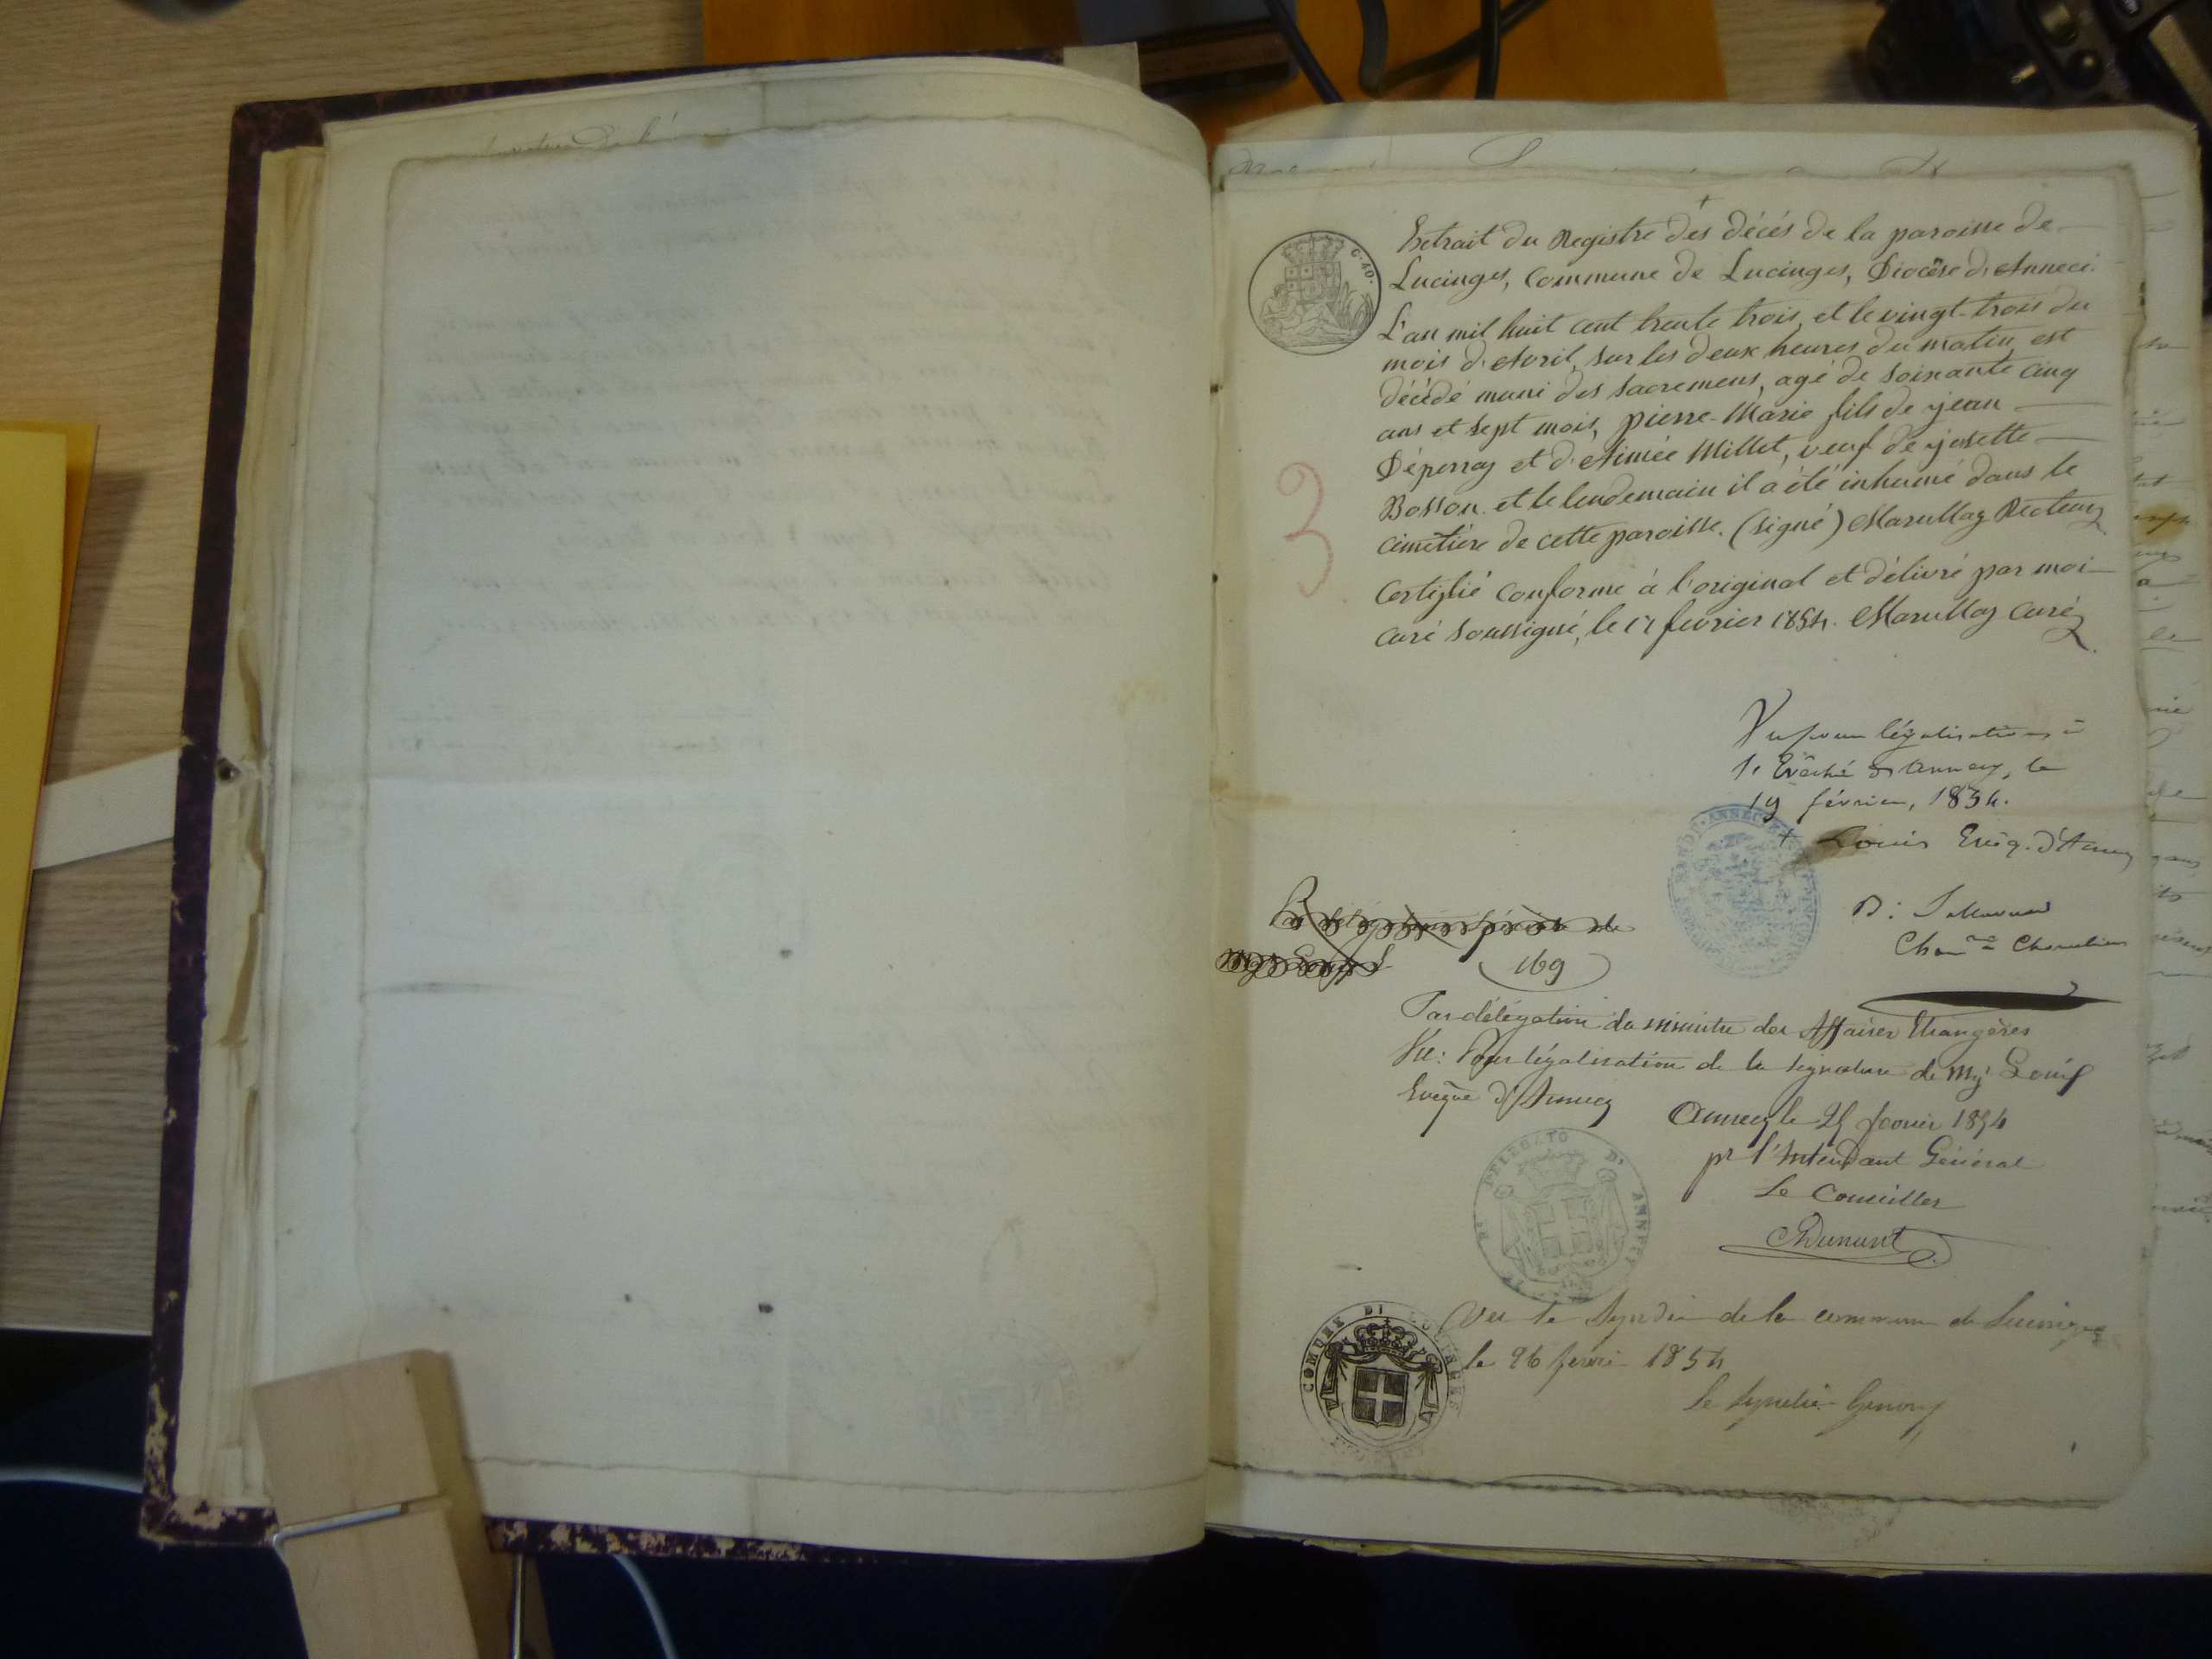 +
Extrait du Registre des décés de la paroisse de
Lucinges, Commune de Lucinges, Diocèse d'Anneci.
L'an mil huit cent trente trois, et le vingt-trois du
mois d'Avril, sur les deux heures du matin, est
décédé muni des sacremens, agé de soixante cinq
ans et sept mois, pierre-Marie fils de jean
Déperraz et d'Aimée Millet, veuf de josette
Bosson. et le lendemain il a été inhumé dans le
cimetière de cette paroisse. (signé) Marullaz Recteur
Certifié conforme à l'original et délivré par moi
curé soussigné, le 17 février 1854. Marullaz Curé
G. 40.
3
Vu pour légalisation à
l'Evêché d'Annecy, le
19 février, 1854.
+ Louis Evêq. d'Annecy
Chan.ne Chancelier
169
Par délégation du ministre des Affaires Etrangères
Vu: Pour légalisation de la signature de Mgr Louis
Evêque d'Annecy
Annecy le 25 fevrier 1854
pr l'Intendant Général
Le Conseiller
Dunant
DELEGATO D'ANNECY
Vu le Syndic de la commune de Lucinges
le 26 fevri 1854
le syndic
COMUNE DI LUCINGES